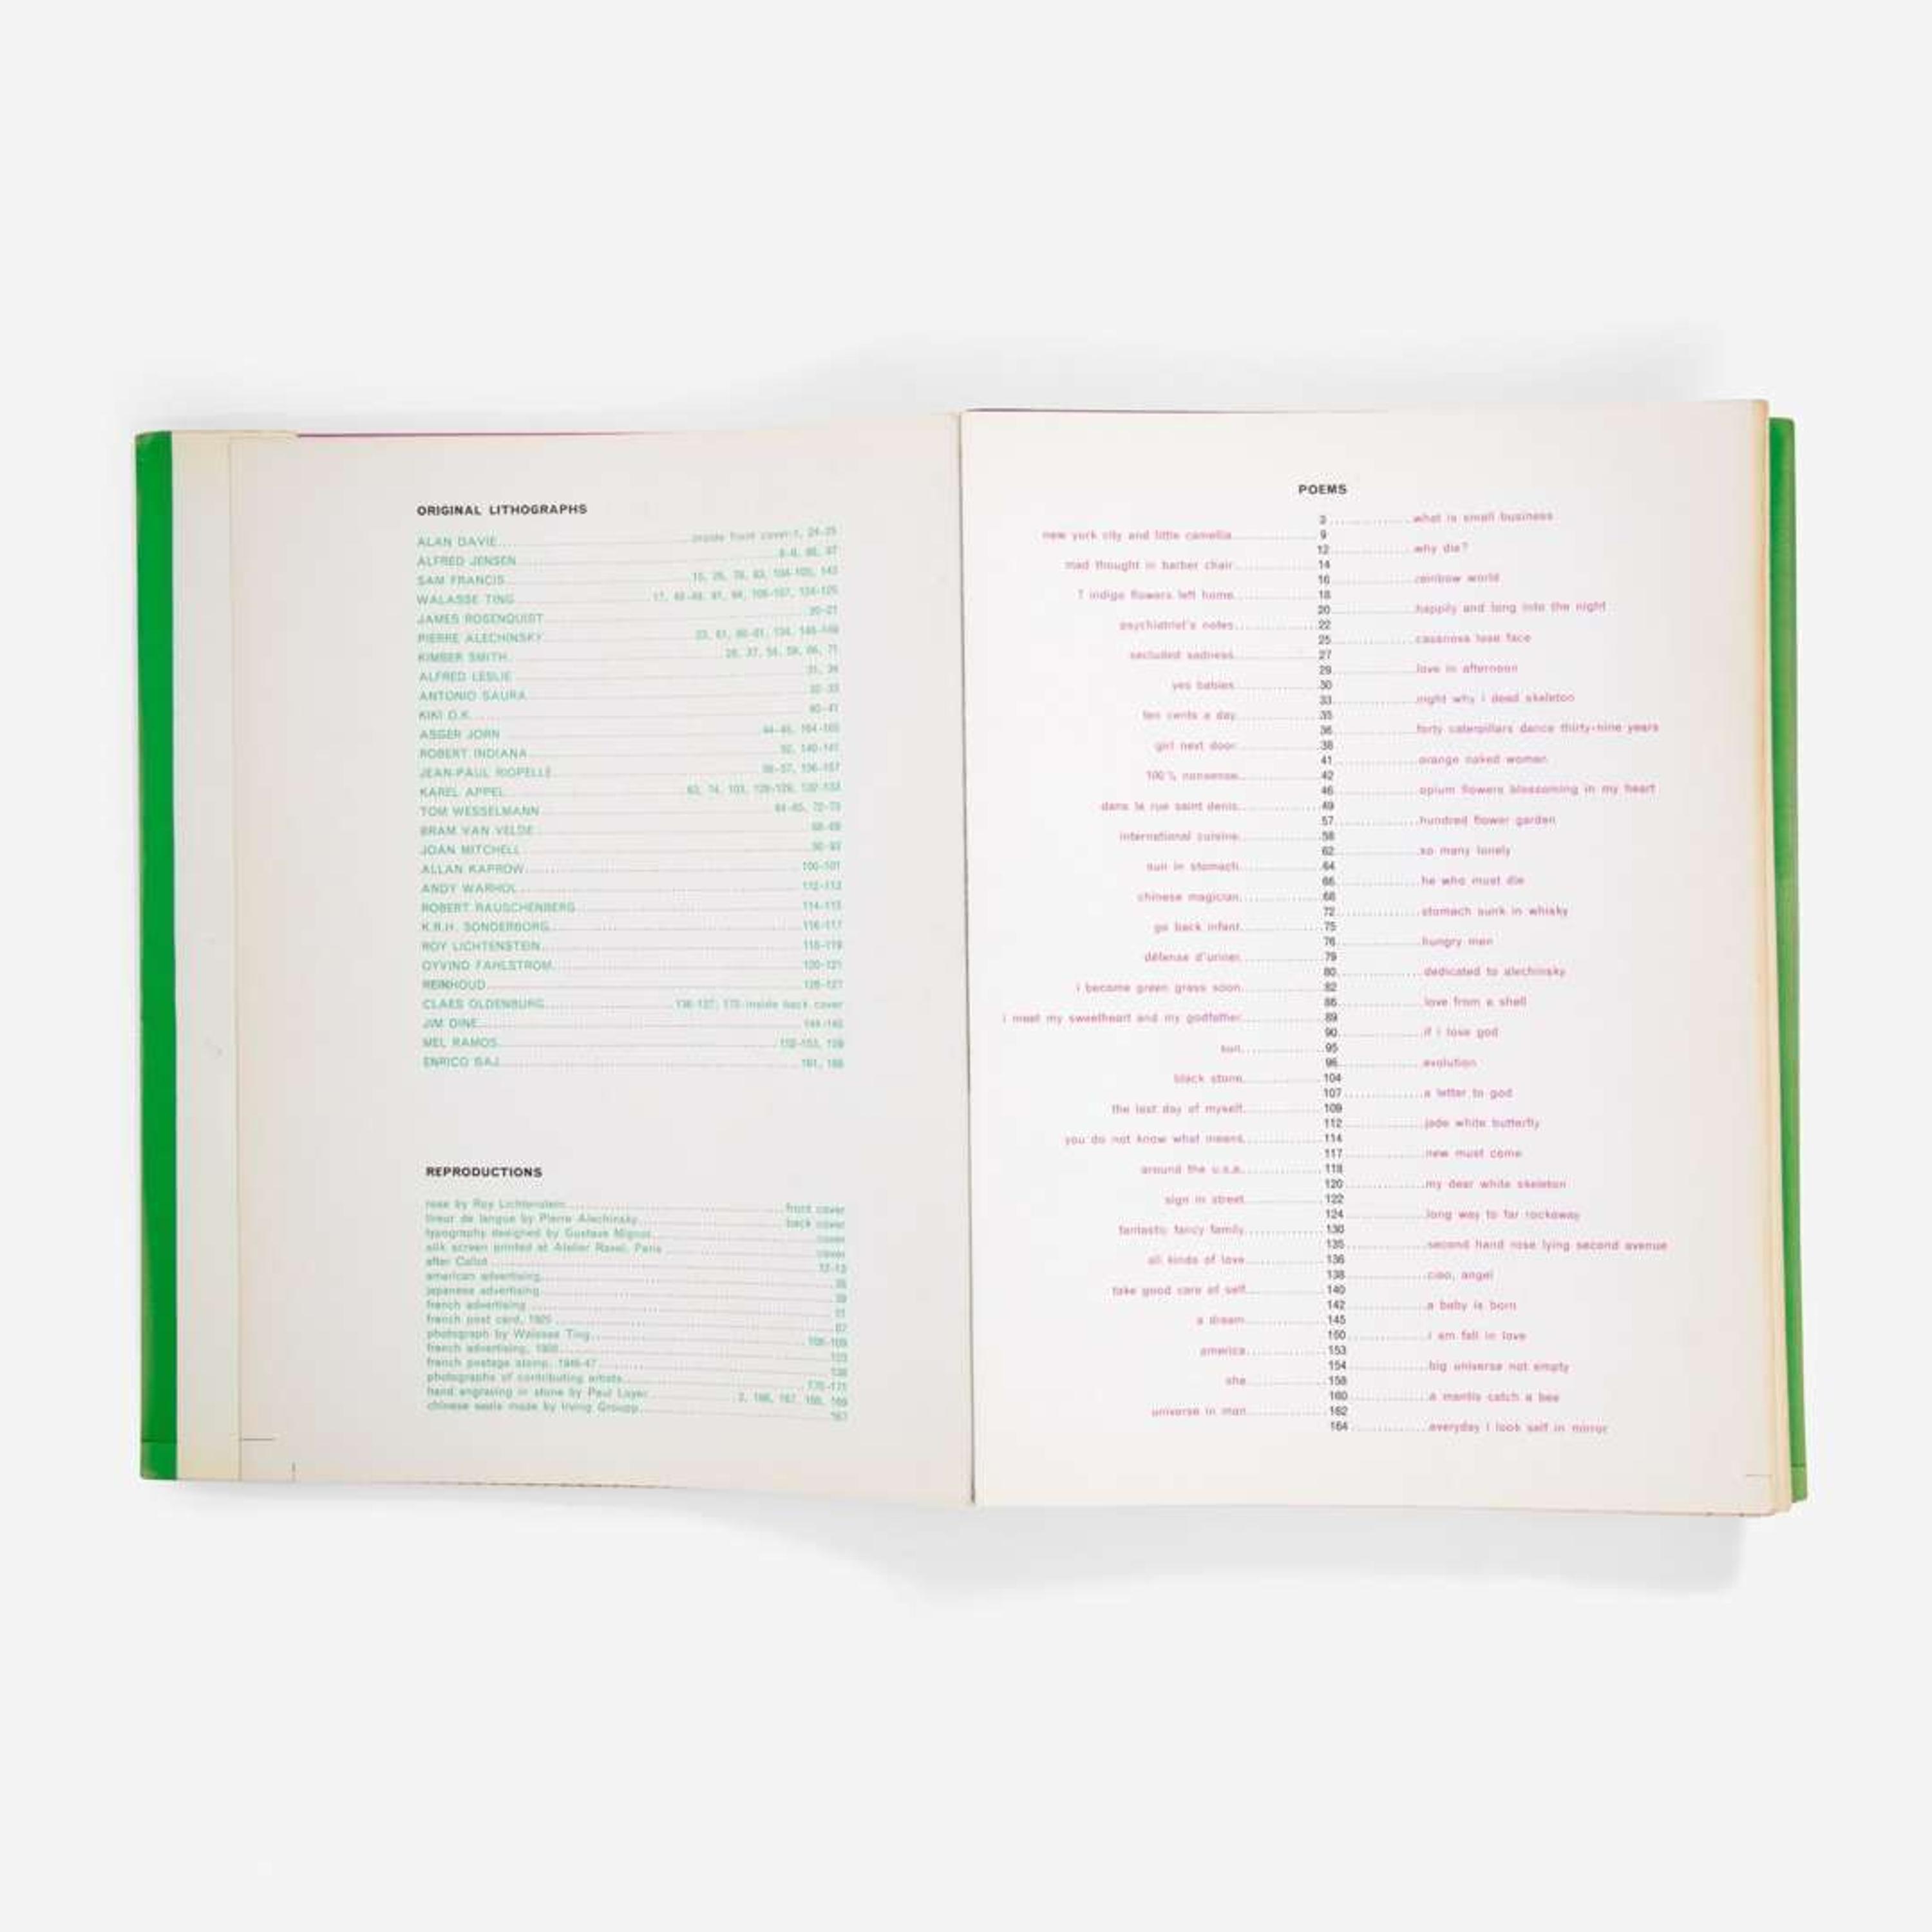 ORIGINAL LITHOGRAPHS
ALAN DAVIE inside front cover-1, 24-25
ALFRED JENSEN
SAM FRANCIS
WALASSE TING
JAMES ROSENQUIST 20-21
PIERRE ALECHINSKY
KIMBER SMITH
ALFRED LESLIE
ANTONIO SAURA 32-33
KIKI O.K. 40-41
ASGER JORN 44-45, 164-165
ROBERT INDIANA 52, 140-141
JEAN-PAUL RIOPELLE 56-57, 156-157
KAREL APPEL
TOM WESSELMANN 64-65, 72-73
BRAM VAN VELDE 68-69
JOAN MITCHELL
ALLAN KAPROW 100-101
ANDY WARHOL 112-113
ROBERT RAUSCHENBERG 114-115
K.R.H. SONDERBORG 116-117
ROY LICHTENSTEIN 118-119
OYVIND FAHLSTROM 120-121
REINHOUD 126-127
CLAES OLDENBURG inside back cover
JIM DINE
MEL RAMOS
ENRICO BAJ
REPRODUCTIONS
rose by Roy Lichtenstein front cover
tireur de langue by Pierre Alechinsky back cover
typography designed by Gustave Mignot cover
silk screen printed at Atelier Ravel, Paris cover
after Callot 12-13
american advertising
japanese advertising
french advertising
french post card, 1925
photograph by Walasse Ting 108-109
french advertising, 1900
french postage stamp, 1946-47
photographs of contributing artists 170-171
hand engraving in stone by Paul Layer
chinese seals made by Irving Groupp 167
POEMS
3 what is small business
new york city and little camellia 9
12 why die?
mad thought in barber chair 14
16 rainbow world
7 indigo flowers left home 18
20 happily and long into the night
psychiatrist's notes 22
25 casanova lose face
secluded sadness 27
29 love in afternoon
yes babies 30
33 night why i dead skeleton
ten cents a day 35
36 forty caterpillars dance thirty-nine years
girl next door 38
41 orange naked woman
100 % nonsense 42
46 opium flowers blossoming in my heart
dans la rue saint denis 49
57 hundred flower garden
international cuisine 58
62 so many lonely
sun in stomach 64
66 he who must die
chinese magician 68
72 stomach sunk in whisky
go back infant 75
76 hungry man
défense d'uriner 79
80 dedicated to alechinsky
i become green grass soon 82
86 love from a shell
i meet my sweetheart and my godfather 89
90 if i love god
sun 95
96 evolution
black stone 104
107 a letter to god
the last day of myself 109
112 jade white butterfly
you do not know what means 114
117 new must come
around the u.s.a. 118
120 my dear white skeleton
sign in street 122
124 long way to far rockaway
fantastic fancy family 130
135 second hand rose lying second avenue
all kinds of love 136
138 ciao, angel
take good care of self 140
142 a baby is born
a dream 145
150 i am fall in love
america 153
154 big universe not empty
she 158
160 a mantis catch a bee
universe in man 162
164 everyday i look self in mirror